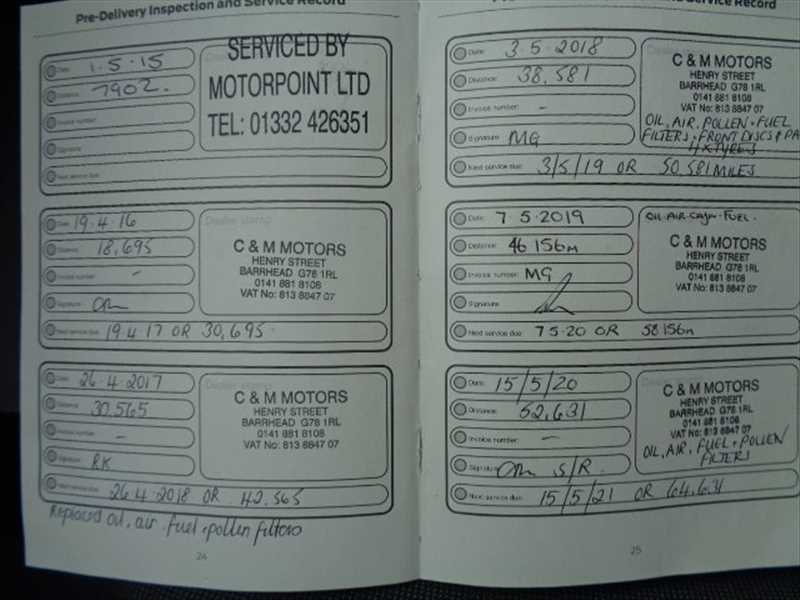 Pre-Delivery Inspection and Service Record
Date: 1.5.15
Distance: 7902.
Invoice number:
Signature:
Next service due:
SERVICED BY
MOTORPOINT LTD
TEL: 01332 426351
Date: 19.4.16
Distance: 18,695
Invoice number: -
Signature:
Next service due: 19.4.17 OR 30,695
Dealer stamp
C & M MOTORS
HENRY STREET
BARRHEAD G78 1RL
0141 881 8108
VAT No: 813 8847 07
Date: 26.4.2017
Distance: 30,565
Invoice number: -
Signature: RK
Next service due: 26.4.2018 OR 42,565
Dealer stamp
C & M MOTORS
HENRY STREET
BARRHEAD G78 1RL
0141 881 8108
VAT No: 813 8847 07
Replaced oil, air, fuel + pollen filters
24
Service Record
Date: 3.5.2018
Distance: 38,581
Invoice number: -
Signature: MG
Next service due: 3/5/19 OR 50,581 MILES
C & M MOTORS
HENRY STREET
BARRHEAD G78 1RL
0141 881 8108
VAT No: 813 8847 07
OIL, AIR, POLLEN + FUEL
FILTERS + FRONT DISCS & PA
4 X TYRES
Date: 7 5.2019
Distance: 46 156m
Invoice number: MG
Signature:
Next service due: 7 5.20 OR 58 156m
OIL AIR FUEL.
C & M MOTORS
HENRY STREET
BARRHEAD G78 1RL
0141 881 8108
VAT No: 813 8847 07
Date: 15/5/20
Distance: 52,631
Invoice number: -
Signature: S/R.
Next service due: 15/5/21 OR 64,631
C & M MOTORS
HENRY STREET
BARRHEAD G78 1RL
0141 881 8108
VAT No: 813 8847 07
OIL, AIR, FUEL + POLLEN
FILTERS
25